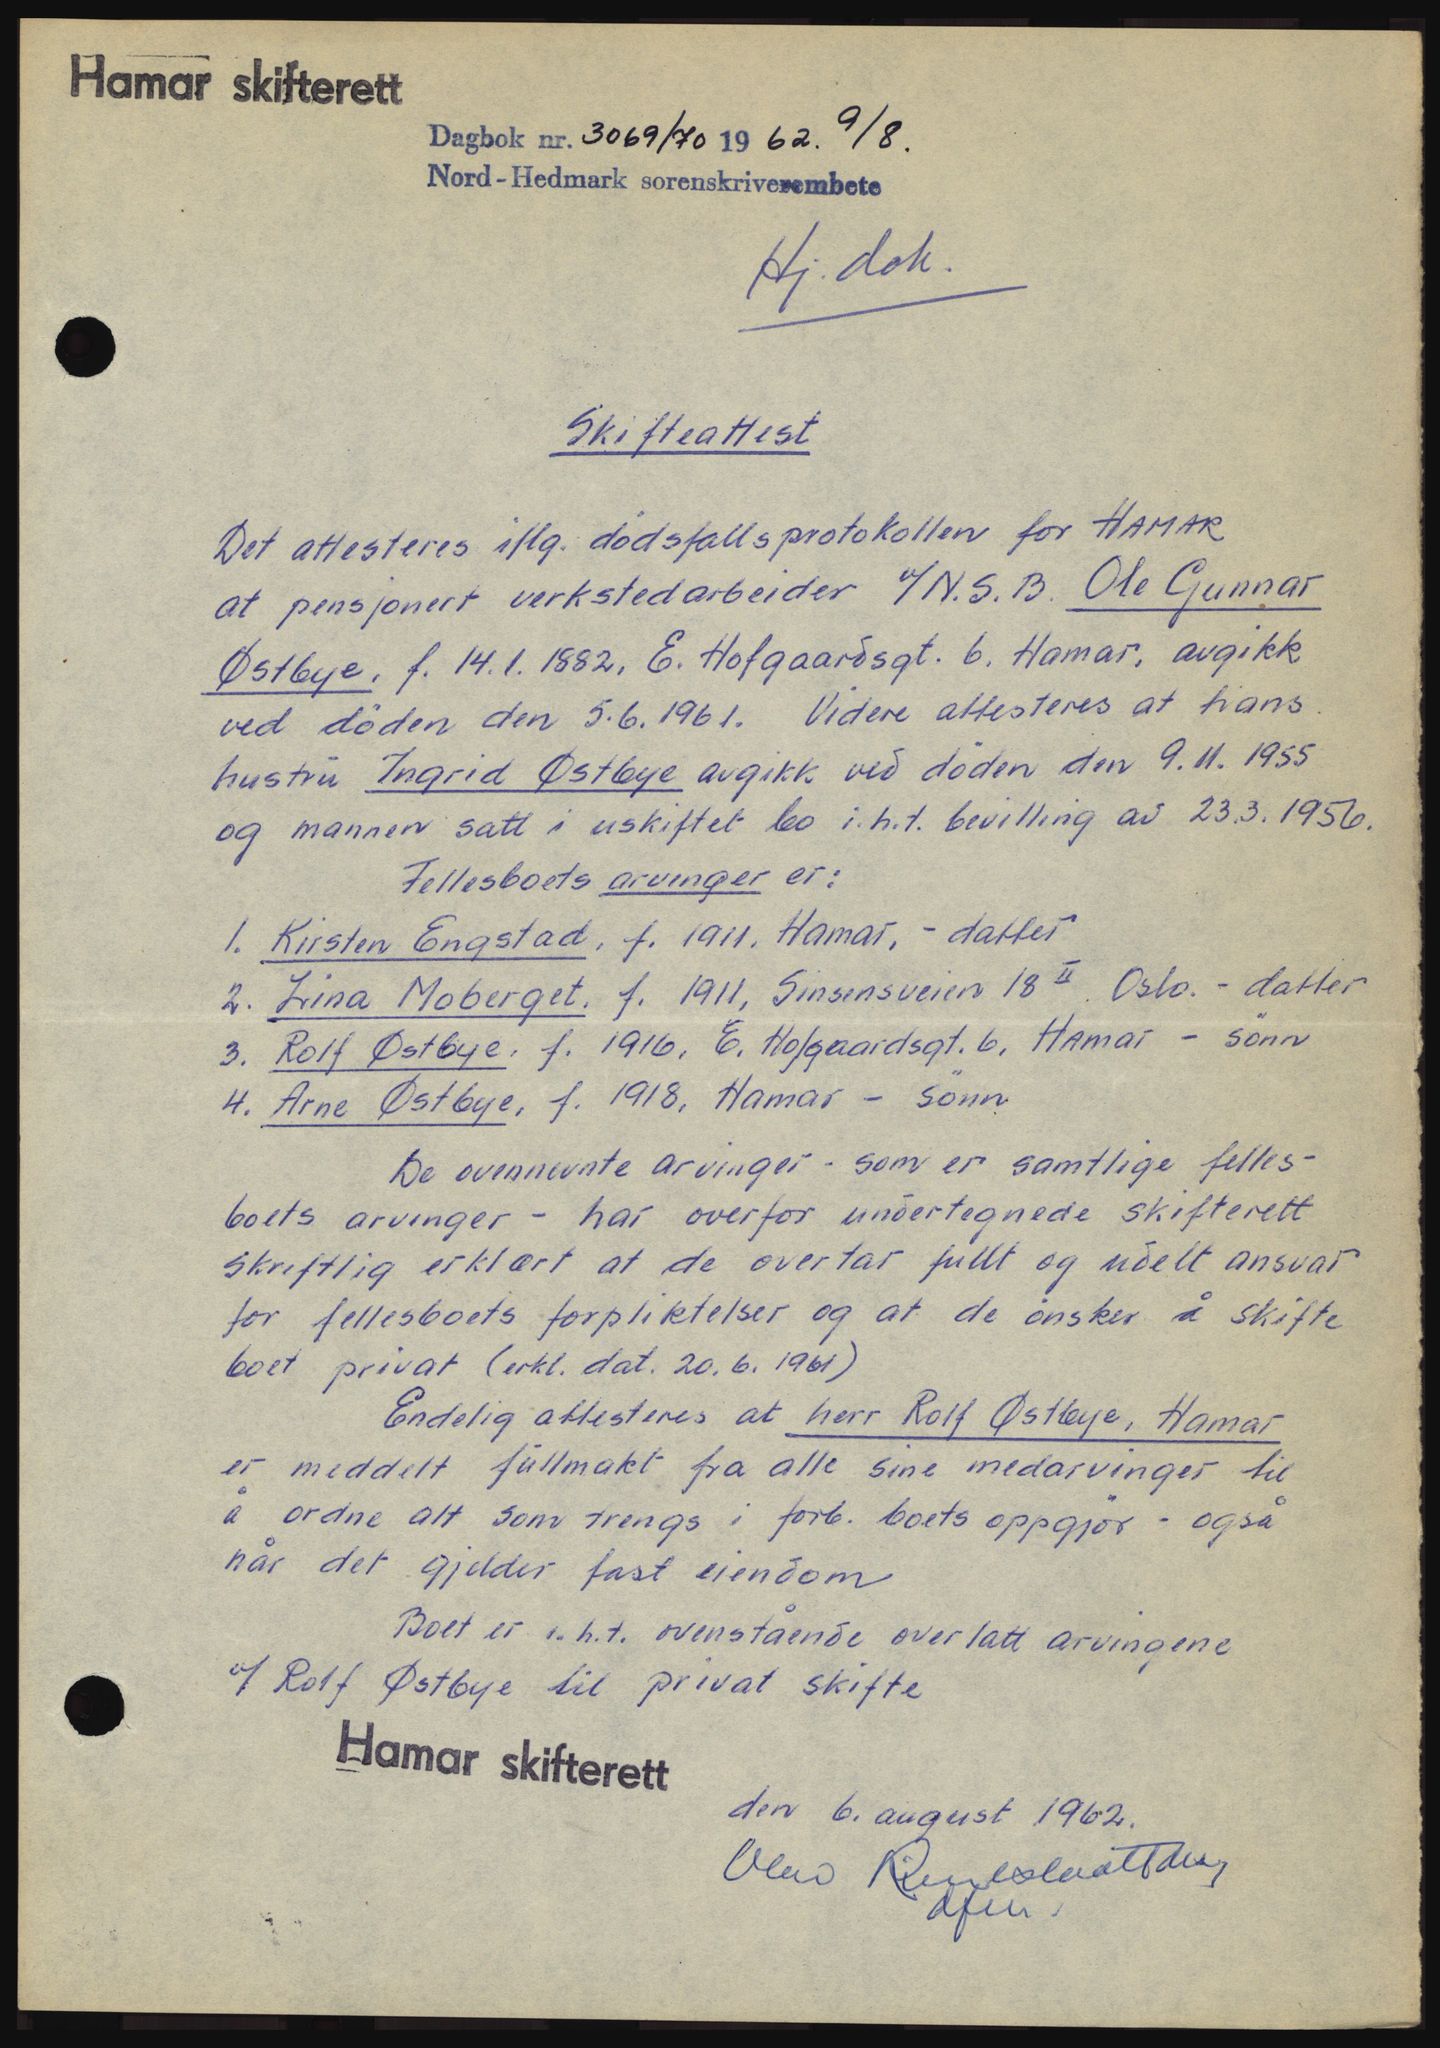 Hamar skifterett
Dagbok nr. 3069/70 1962. 9/8.
Nord-Hedmark sorenskriverembete
Hj. dok.
Skifteattest
Det attesteres iflg. dödsfallsprotokollen for HAMAR
at pensjonert verkstedarbeider v/N.S.B. Ole Gunnar
Østbye, f. 14.1.1882, E. Hofgaardsgt. 6, Hamar, avgikk
ved döden den 5.6.1961. Videre attesteres at hans
hustru Ingrid Østbye avgikk ved döden den 9.11.1955
og mannen satt i uskiftet bo i.h.t. bevilling av 23.3.1956.
Fellesboets arvinger er:
1. Kirsten Engstad, f. 1911, Hamar, - datter
2. Lina Moberget, f. 1911, Sinsensveien 18 II Oslo. - datter
3. Rolf Østbye, f. 1916, E. Hofgaardsgt. 6, Hamar - sönn
4. Arne Østbye, f. 1918, Hamar - sönn
De ovennevnte arvinger - som er samtlige felles-
boets arvinger - har overfor undertegnede skifterett
skriftlig erklært at de overtar fullt og udelt ansvar
for fellesboets forpliktelser og at de önsker å skifte
boet privat (erkl. dat. 20.6.1961)
Endelig attesteres at herr Rolf Østbye, Hamar
er meddelt fullmakt fra alle sine medarvinger til
å ordne alt som trengs i forb. boets oppgjör - også
når det gjelder fast eiendom
Boet er i.h.t. ovenstående overlatt arvingene
v/ Rolf Østbye til privat skifte
Hamar skifterett
den 6. august 1962.